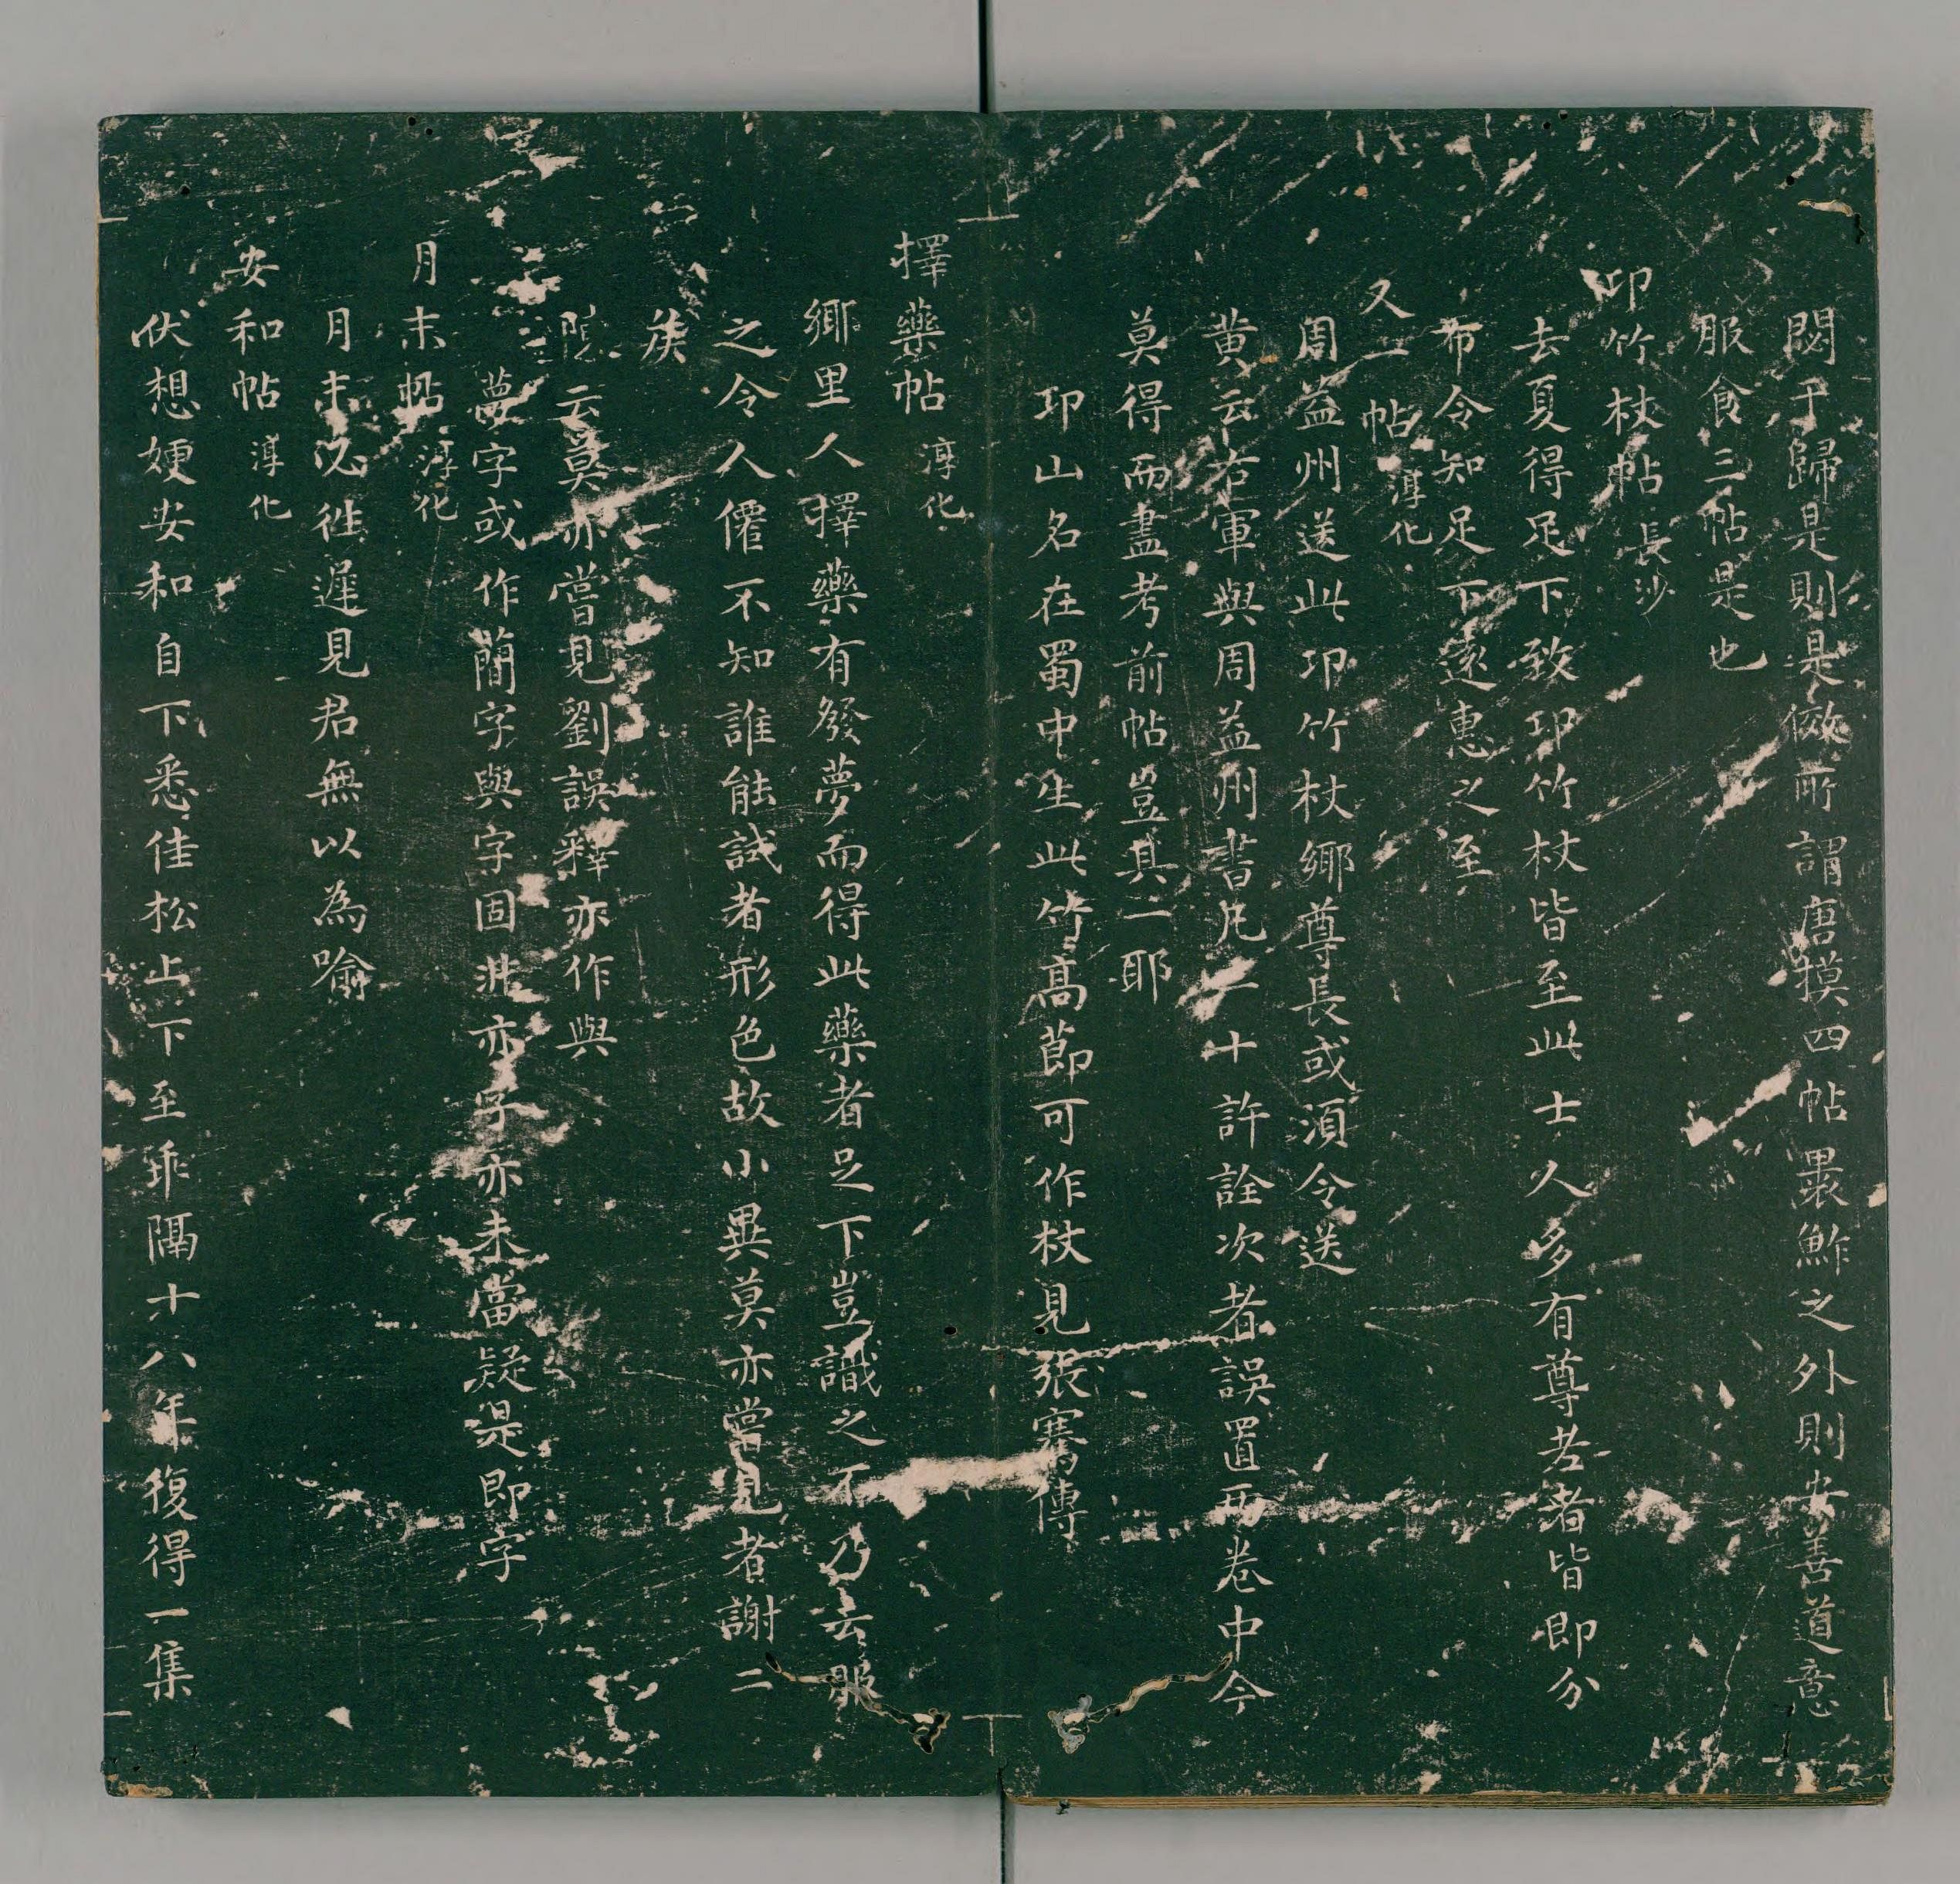 閎于歸是則是倣所謂唐摸四帖裹鮓之外則安善道意
服食三帖是也
卭竹杖帖 長沙
去夏得足下致卭竹杖皆至此士人多有尊老者皆即分
布令知足下遠惠之至
又一帖 淳化
周益州送此卭竹杖鄉尊長或須令送
黃云右軍與周益州書凡一十許詮次者誤置兩卷中今
莫得而盡考前帖豈其一耶
卭山名在蜀中生此竹高節可作杖見張騫傳
擇藥帖 淳化
鄉里人擇藥有發夢而得此藥者足下豈識之不乃云服
之令人僊不知誰能試者形色故小異莫亦嘗見者謝二
侯
云莫亦嘗見劉誤釋亦作與
夢字或作蘭字與字固非亦字亦未當疑是即字
月末帖 淳化
月末必往遲見君無以為喻
安和帖 淳化
伏想嫂安和自下悉佳松上下至乖隔十八年復得一集